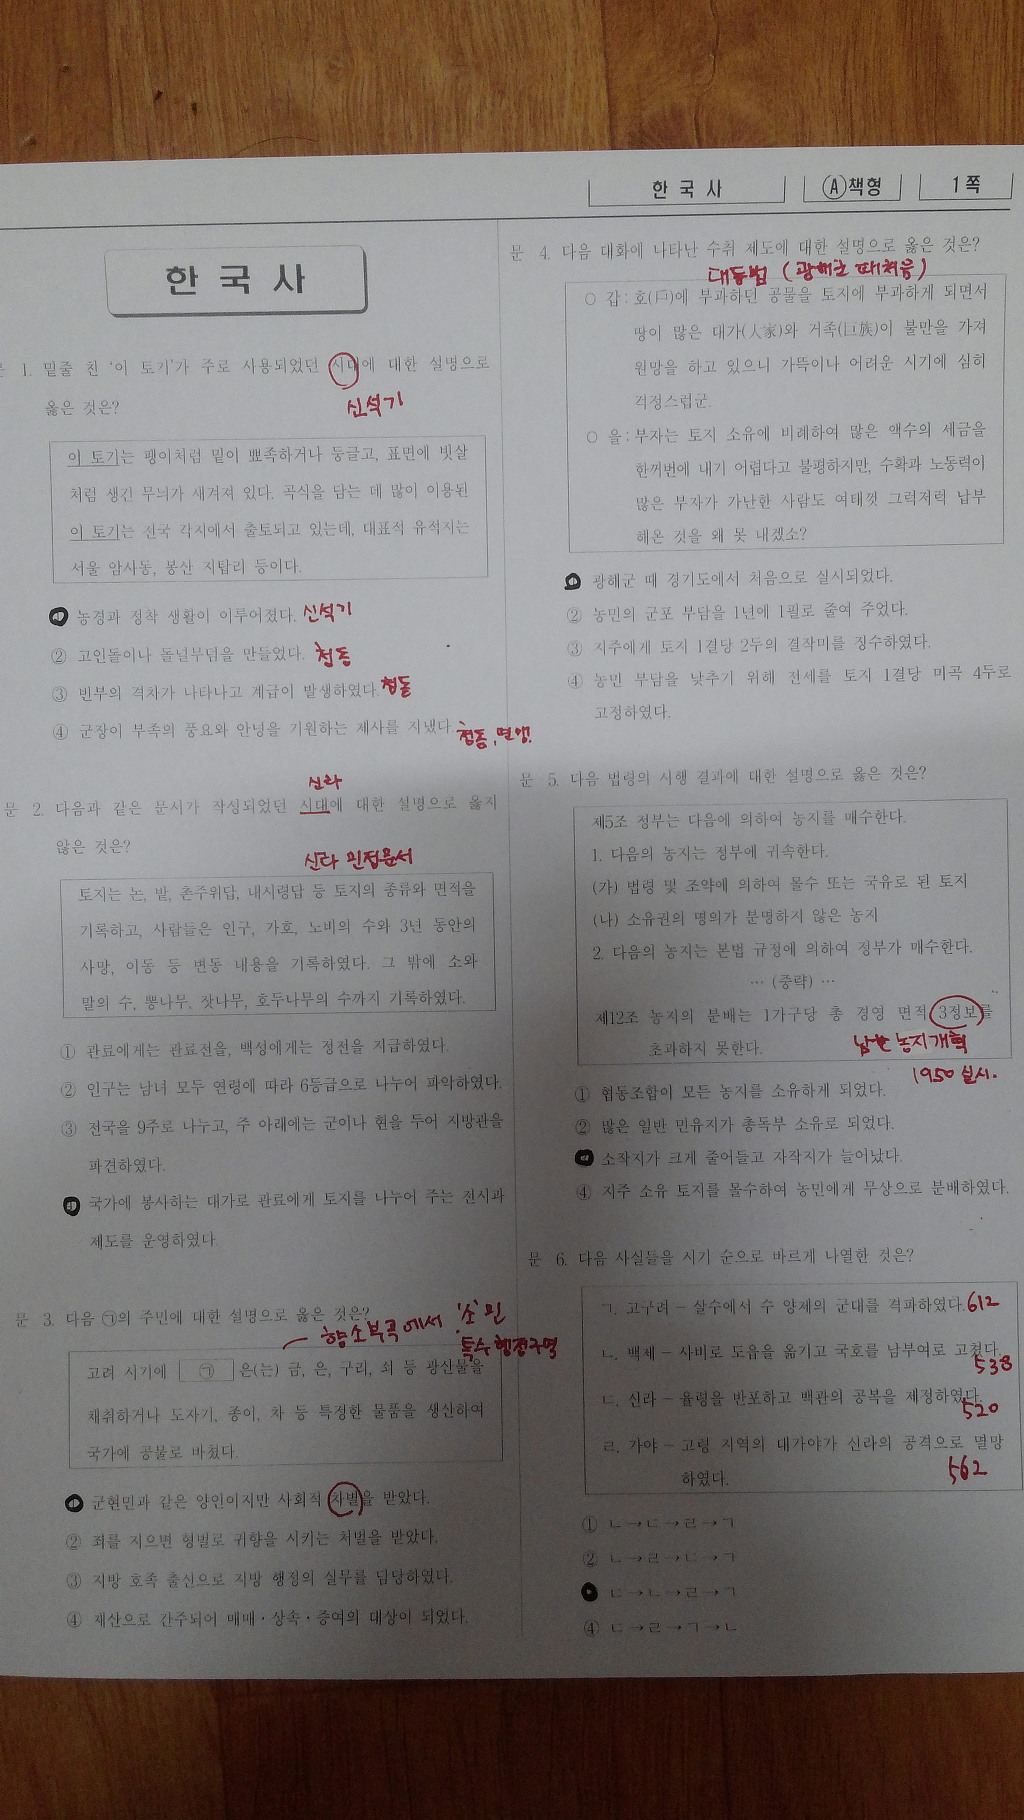 한 국 사
Ⓐ책형
1쪽
한 국 사
1. 밑줄 친 '이 토기'가 주로 사용되었던 시대에 대한 설명으로
옳은 것은?
신석기
이 토기는 팽이처럼 밑이 뾰족하거나 둥글고, 표면에 빗살
처럼 생긴 무늬가 새겨져 있다. 곡식을 담는 데 많이 이용된
이 토기는 전국 각지에서 출토되고 있는데, 대표적 유적지는
서울 암사동, 봉산 지탑리 등이다.
① 농경과 정착 생활이 이루어졌다. 신석기
② 고인돌이나 돌널무덤을 만들었다. 청동
③ 빈부의 격차가 나타나고 계급이 발생하였다. 청동
④ 군장이 부족의 풍요와 안녕을 기원하는 제사를 지냈다. 청동,
신라
문 2. 다음과 같은 문서가 작성되었던 시대에 대한 설명으로 옳지
않은 것은?
신라 민정문서
토지는 논, 밭, 촌주위답, 내시령답 등 토지의 종류와 면적을
기록하고, 사람들은 인구, 가호, 노비의 수와 3년 동안의
사망, 이동 등 변동 내용을 기록하였다. 그 밖에 소와
말의 수, 뽕나무, 잣나무, 호두나무의 수까지 기록하였다.
① 관료에게는 관료전을, 백성에게는 정전을 지급하였다.
② 인구는 남녀 모두 연령에 따라 6등급으로 나누어 파악하였다.
③ 전국을 9주로 나누고, 주 아래에는 군이나 현을 두어 지방관을
파견하였다.
④ 국가에 봉사하는 대가로 관료에게 토지를 나누어 주는 전시과
제도를 운영하였다.
문 3. 다음 ㉠의 주민에 대한 설명으로 옳은 것은?
향소부곡에서 '소'민
특수행정구역
고려 시기에 ㉠ 은(는) 금, 은, 구리, 쇠 등 광산물을
채취하거나 도자기, 종이, 차 등 특정한 물품을 생산하여
국가에 공물로 바쳤다.
① 군현민과 같은 양인이지만 사회적 차별을 받았다.
② 죄를 지으면 형벌로 귀향을 시키는 처벌을 받았다.
③ 지방 호족 출신으로 지방 행정의 실무를 담당하였다.
④ 재산으로 간주되어 매매·상속·증여의 대상이 되었다.
문 4. 다음 대화에 나타난 수취 제도에 대한 설명으로 옳은 것은?
대동법 (광해군 때 처음)
○ 갑 : 호(戶)에 부과하던 공물을 토지에 부과하게 되면서
땅이 많은 대가(大家)와 거족(巨族)이 불만을 가져
원망을 하고 있으니 가뜩이나 어려운 시기에 심히
걱정스럽군.
○ 을 : 부자는 토지 소유에 비례하여 많은 액수의 세금을
한꺼번에 내기 어렵다고 불평하지만, 수확과 노동력이
많은 부자가 가난한 사람도 여태껏 그럭저럭 납부
해온 것을 왜 못 내겠소?
① 광해군 때 경기도에서 처음으로 실시되었다.
② 농민의 군포 부담을 1년에 1필로 줄여 주었다.
③ 지주에게 토지 1결당 2두의 결작미를 징수하였다.
④ 농민 부담을 낮추기 위해 전세를 토지 1결당 미곡 4두로
고정하였다.
문 5. 다음 법령의 시행 결과에 대한 설명으로 옳은 것은?
제5조 정부는 다음에 의하여 농지를 매수한다.
1. 다음의 농지는 정부에 귀속한다.
(가) 법령 및 조약에 의하여 몰수 또는 국유로 된 토지
(나) 소유권의 명의가 분명하지 않은 농지
2. 다음의 농지는 본법 규정에 의하여 정부가 매수한다.
… (중략) …
제12조 농지의 분배는 1가구당 총 경영 면적 3정보를
초과하지 못한다.
남한 농지개혁
1950 실시.
① 협동조합이 모든 농지를 소유하게 되었다.
② 많은 일반 민유지가 총독부 소유로 되었다.
③ 소작지가 크게 줄어들고 자작지가 늘어났다.
④ 지주 소유 토지를 몰수하여 농민에게 무상으로 분배하였다.
문 6. 다음 사실들을 시기 순으로 바르게 나열한 것은?
ㄱ. 고구려 － 살수에서 수 양제의 군대를 격파하였다. 612
ㄴ. 백제 － 사비로 도읍을 옮기고 국호를 남부여로 고쳤다.
538
ㄷ. 신라 － 율령을 반포하고 백관의 공복을 제정하였다.
520
ㄹ. 가야 － 고령 지역의 대가야가 신라의 공격으로 멸망
하였다. 562
① ㄴ→ㄷ→ㄹ→ㄱ
② ㄴ→ㄹ→ㄷ→ㄱ
③ ㄷ→ㄴ→ㄹ→ㄱ
④ ㄷ→ㄹ→ㄱ→ㄴ